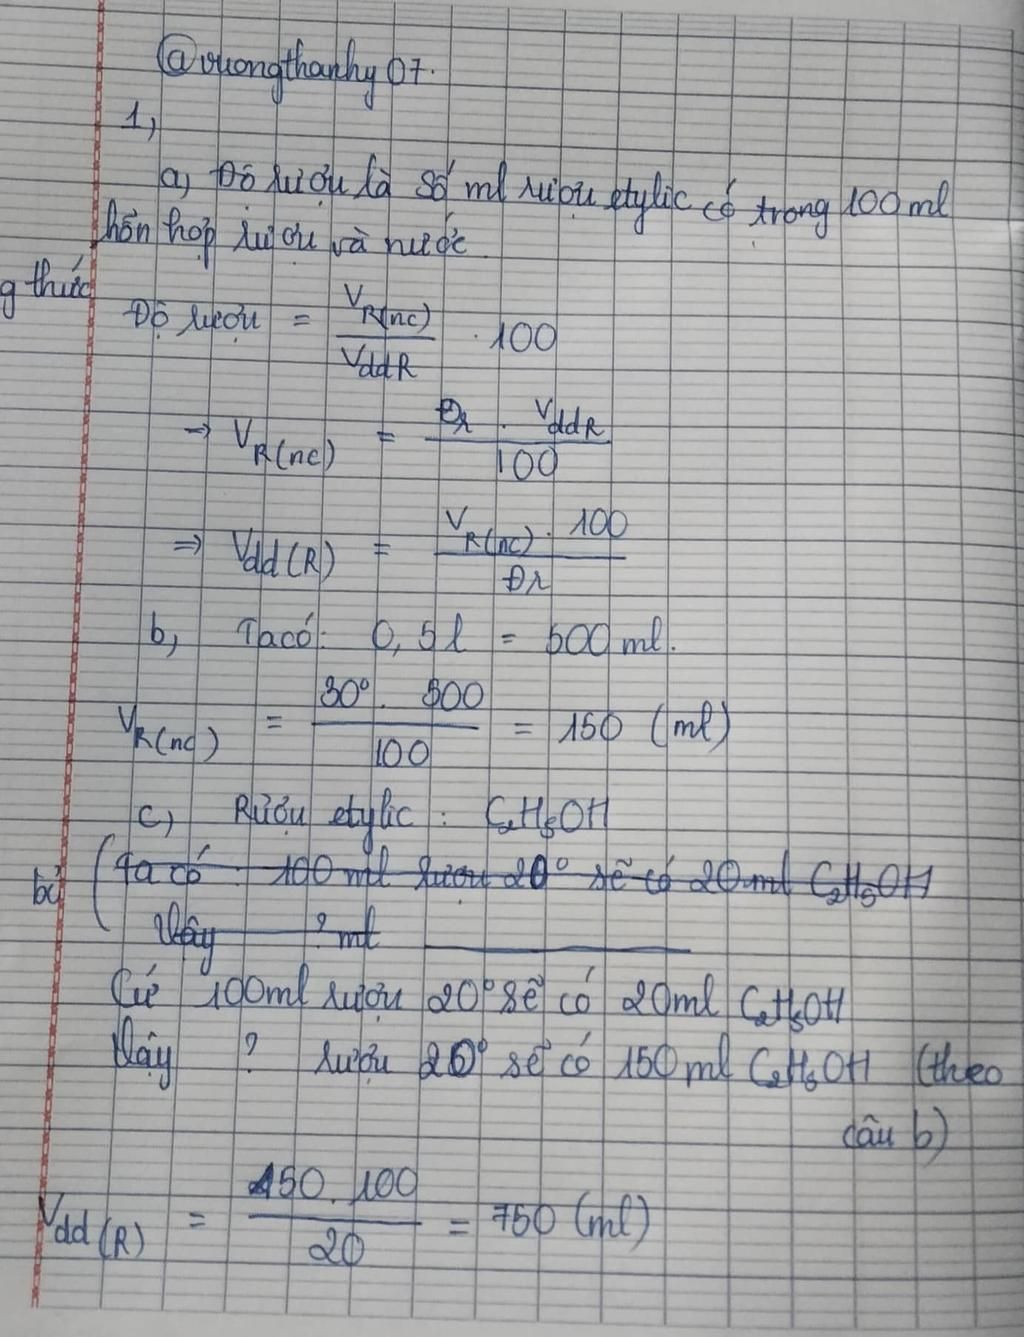 @vuongthanhy07.
1,
a, Độ rượu là số ml rượu etylic có trong 100ml
hỗn hợp rượu và nước.
g thức
Độ rượu = V R(nc) / VddR . 100
→ V R(nc) = Đr . VddR / 100
⇒ Vdd(R) = V R(nc) . 100 / Đr
b, Ta có: 0,5l = 500ml.
V R(nc) = 30° . 500 / 100 = 150 (ml)
c, Rượu etylic : C2H5OH
bỏ ( Ta có 100ml rượu 20° sẽ có 20ml C2H5OH
Vậy ? ml
Cứ 100ml rượu 20° sẽ có 20ml C2H5OH
Vậy ? rượu 20° sẽ có 150ml C2H5OH (theo
câu b)
Vdd(R) = 150 . 100 / 20 = 750 (ml)